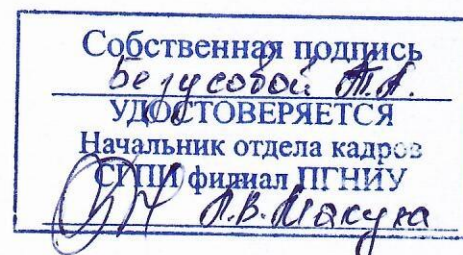 Собственная подпись
Белусовой Т.А.
УДОСТОВЕРЯЕТСЯ
Начальник отдела кадров
СГПИ филиал ПГНИУ
Л.В. Макуха